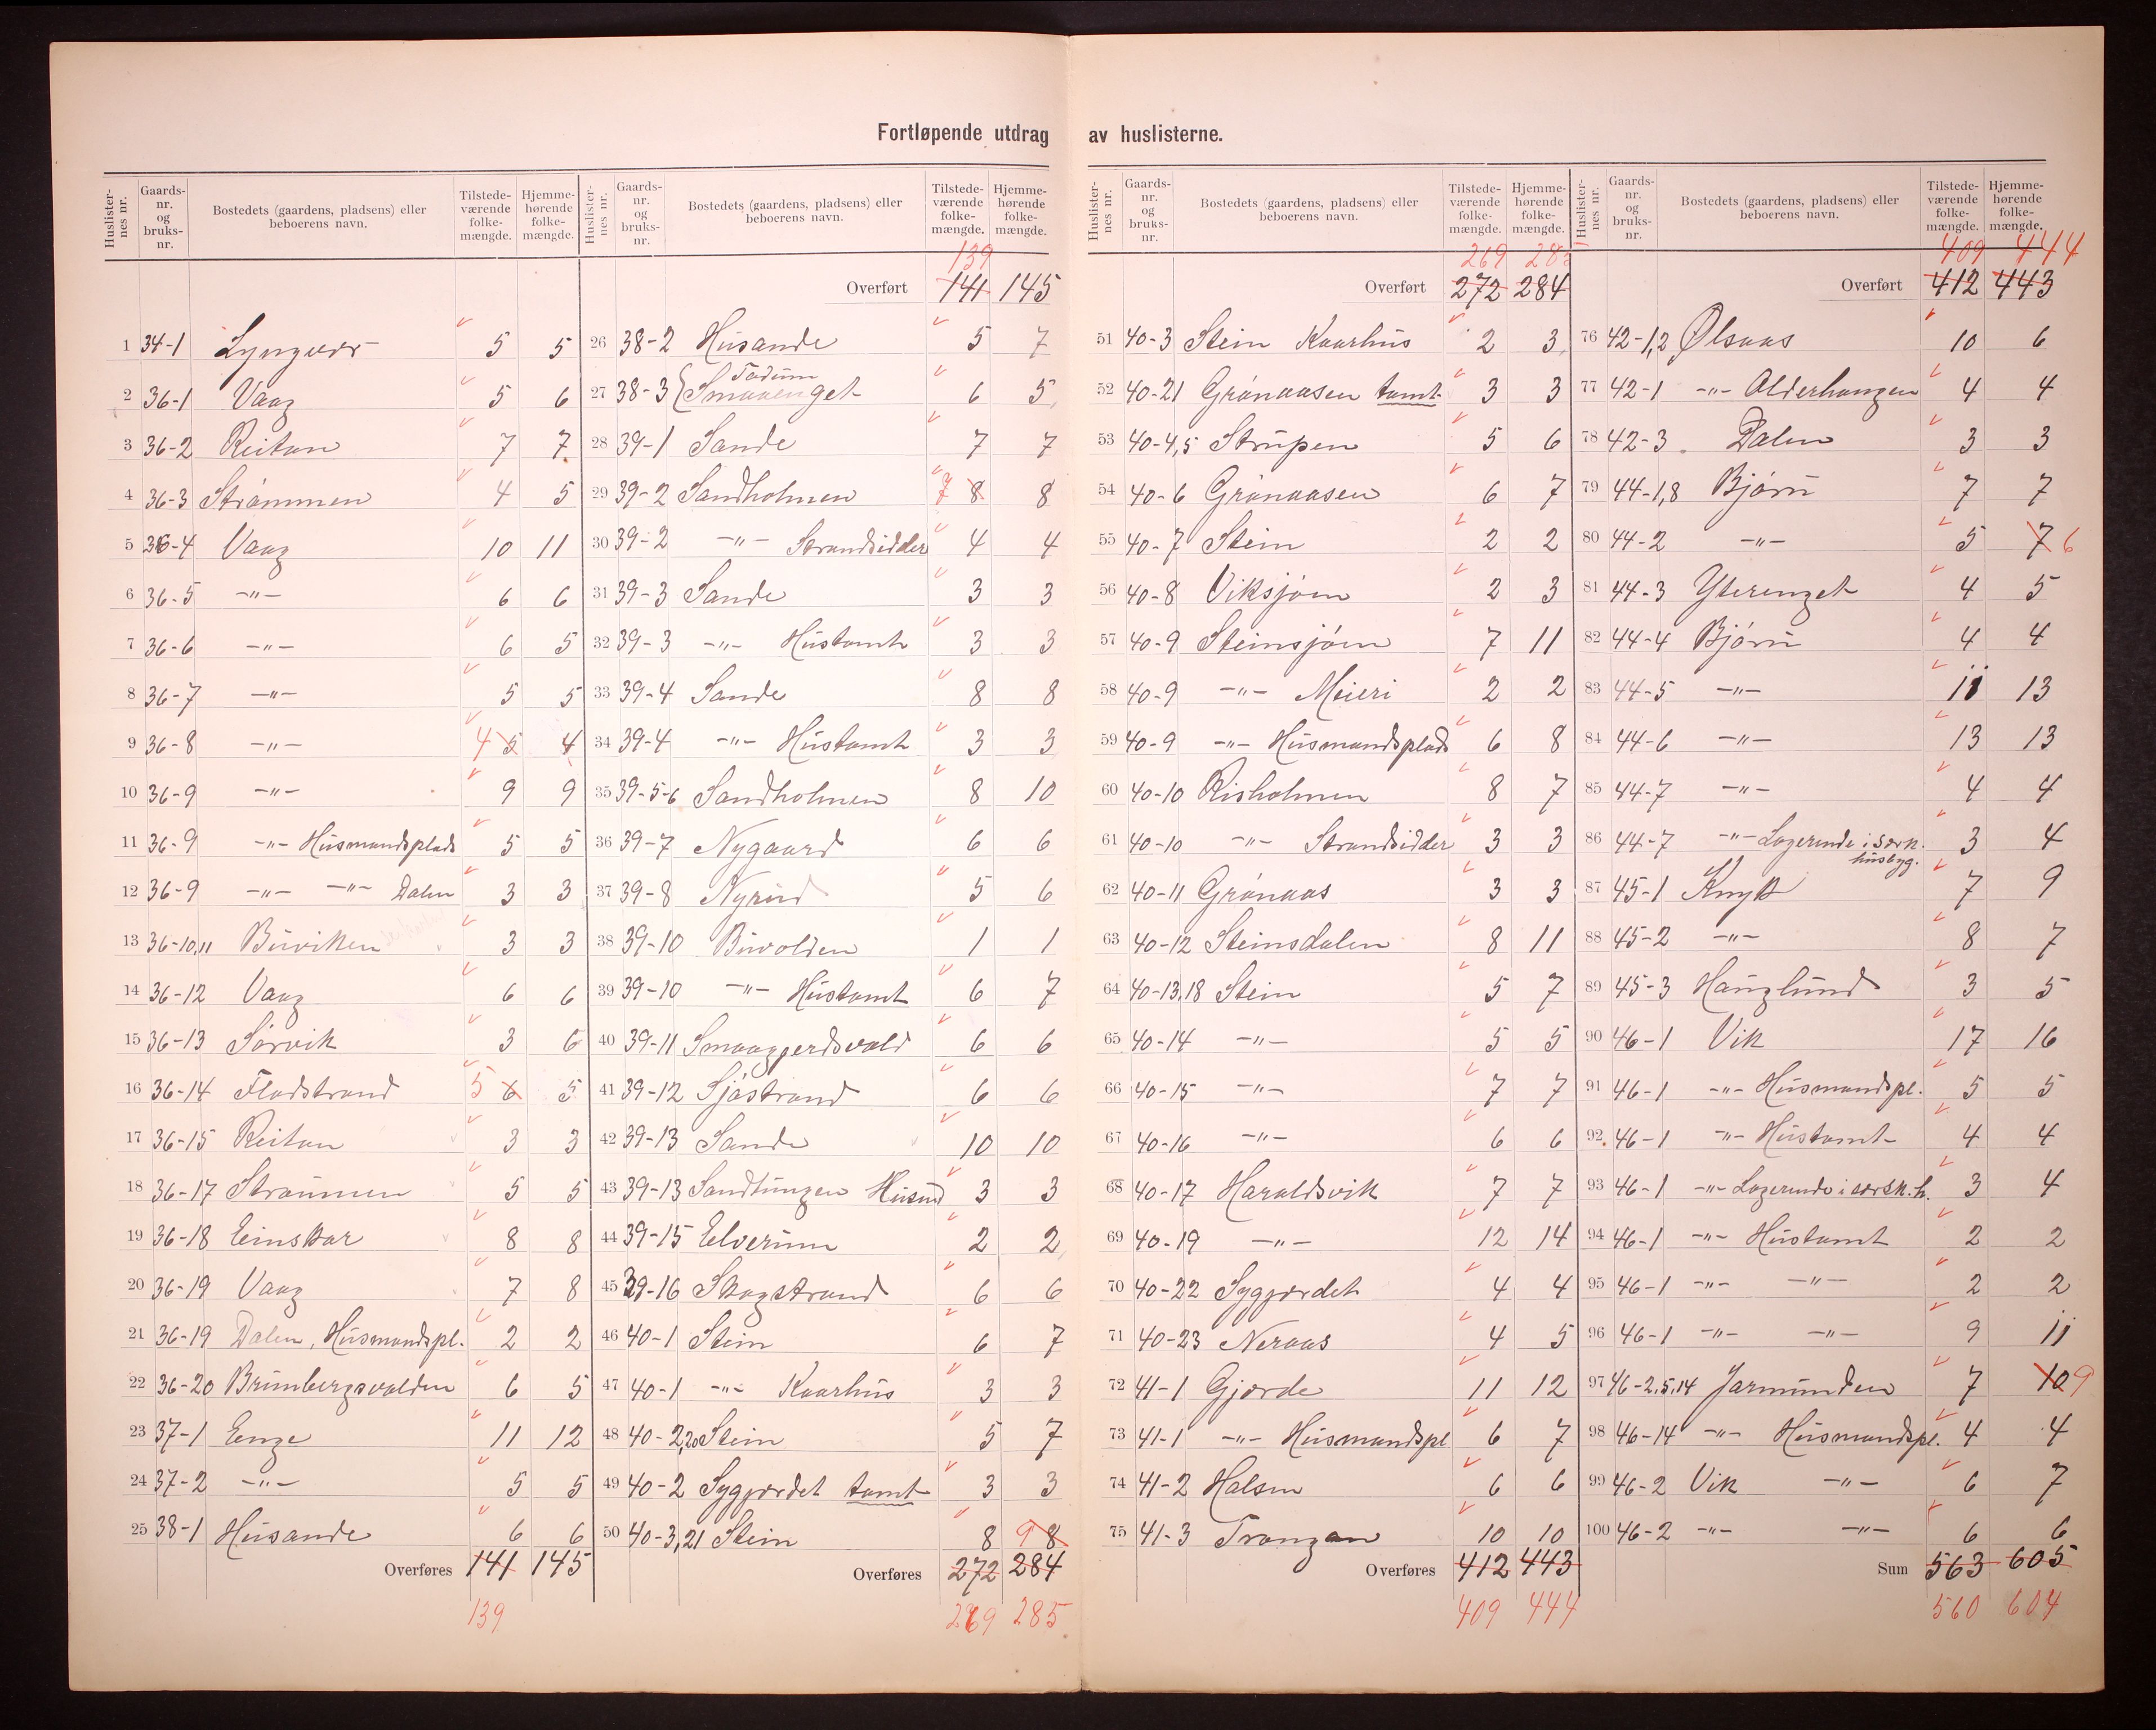 Fortløpende utdrag av huslisterne.
Huslisternes nr. Gaards-nr. og bruks-nr. Bostedets (gaardens, pladsens) eller beboerens navn. Tilstedeværende folkemængde. Hjemmehørende folkemængde.
1 34-1 Lyngvær 5 5
2 36-1 Vaag 5 6
3 36-2 Reitan 7 7
4 36-3 Strømmen 4 5
5 36-4 Vaag 10 11
6 36-5 -"- 6 6
7 36-6 -"- 6 5
8 36-7 -"- 5 5
9 36-8 -"- 4 5 4
10 36-9 -"- 9 9
11 36-9 -"- Husmandsplads 5 5
12 36-9 -"- -"- Dalen 3 3
13 36-10,11 Buviken 3 3
14 36-12 Vaag 6 6
15 36-13 Sørvik 3 6
16 36-14 Fladstrand 5 6 5
17 36-15 Reitan 3 3
18 36-17 Straumen 5 5
19 36-18 Einskar 8 8
20 36-19 Vaag 7 8
21 36-19 Dalen, Husmandspl. 2 2
22 36-20 Brunbergsvolden 6 5
23 37-1 Enge 11 12
24 37-2 -"- 5 5
25 38-1 Husande 6 6
Overføres 141 145
139
Huslisternes nr. Gaards-nr. og bruks-nr. Bostedets (gaardens, pladsens) eller beboerens navn. Tilstedeværende folkemængde. Hjemmehørende folkemængde.
139
Overført 141 145
26 38-2 Husande 5 7
27 38-3 { Smaaenget 6 5
28 39-1 Sande 7 7
29 39-2 Sandholmen 7 8 8
30 39-2 -"- Strandsidder 4 4
31 39-3 Sande 3 3
32 39-3 -"- Hustomt 3 3
33 39-4 Sande 8 8
34 39-4 -"- Hustomt 3 3
35 39-5-6 Sandholmen 8 10
36 39-7 Nygaard 6 6
37 39-8 Nyrud 5 6
38 39-10 Buvolden 1 1
39 39-10 -"- Hustomt 6 7
40 39-11 Smaagjerdsvold 6 6
41 39-12 Sjøstrand 6 6
42 39-13 Sande 10 10
43 39-13 Sandtungen Husmd 3 3
44 39-15 Elverum 2 2
45 39-16 Skogstrand 6 6
46 40-1 Stein 6 7
47 40-1 -"- Kaarhus 3 3
48 40-2,20 Stein 5 7
49 40-2 Sygjerdet tomt 3 3
50 40-3,21 Stein 8 9 8
Overføres 272 284
269 285
Huslisternes nr. Gaards-nr. og bruks-nr. Bostedets (gaardens, pladsens) eller beboerens navn. Tilstedeværende folkemængde. Hjemmehørende folkemængde.
269 285
Overført 272 284
51 40-3 Stein Kaarhus 2 3
52 40-21 Grønaasen tomt 3 3
53 40-4,5 Strupen 5 6
54 40-6 Grønaasen 6 7
55 40-7 Stein 2 2
56 40-8 Viksjøen 2 3
57 40-9 Steinsjøen 7 11
58 40-9 -"- Meieri 2 2
59 40-9 -"- Husmandsplads 6 8
60 40-10 Risholmen 8 7
61 40-10 -"- Strandsidder 3 3
62 40-11 Grønaas 3 3
63 40-12 Steinsdalen 8 11
64 40-13,18 Stein 5 7
65 40-14 -"- 5 5
66 40-15 -"- 7 7
67 40-16 -"- 6 6
68 40-17 Haraldsvik 7 7
69 40-19 -"- 12 14
70 40-22 Sygjerdet 4 4
71 40-23 Neraas 4 5
72 41-1 Gjerde 11 12
73 41-1 -"- Husmandspl 6 7
74 41-2 Halsen 6 6
75 41-3 Trangan 10 10
Overføres 412 443
409 444
Huslisternes nr. Gaards-nr. og bruks-nr. Bostedets (gaardens, pladsens) eller beboerens navn. Tilstedeværende folkemængde. Hjemmehørende folkemængde.
409 444
Overført 412 443
76 42-1,2 Ølsaas 10 6
77 42-1 -"- Olderhaugen 4 4
78 42-3 Dalen 3 3
79 44-1,8 Bjørn 7 7
80 44-2 -"- 5 7 6
81 44-3 Yterenget 4 5
82 44-4 Bjørn 4 4
83 44-5 -"- 11 13
84 44-6 -"- 13 13
85 44-7 -"- 4 4
86 44-7 -"- Logerende i særk. husbyg. 3 4
87 45-1 Knyk 7 9
88 45-2 -"- 8 7
89 45-3 Hauglund 3 5
90 46-1 Vik 17 16
91 46-1 -"- Husmandspl. 5 5
92 46-1 -"- Hustomt 4 4
93 46-1 -"- Logerende i særsk. h. 3 4
94 46-1 -"- Hustomt 2 2
95 46-1 -"- -"- 2 2
96 46-1 -"- -"- 9 11
97 46-2,5,14 Jarmunden 7 10 9
98 46-14 -"- Husmandspl. 4 4
99 46-2 Vik -"- 6 7
100 46-2 -"- -"- 6 6
Sum 563 605
560 604